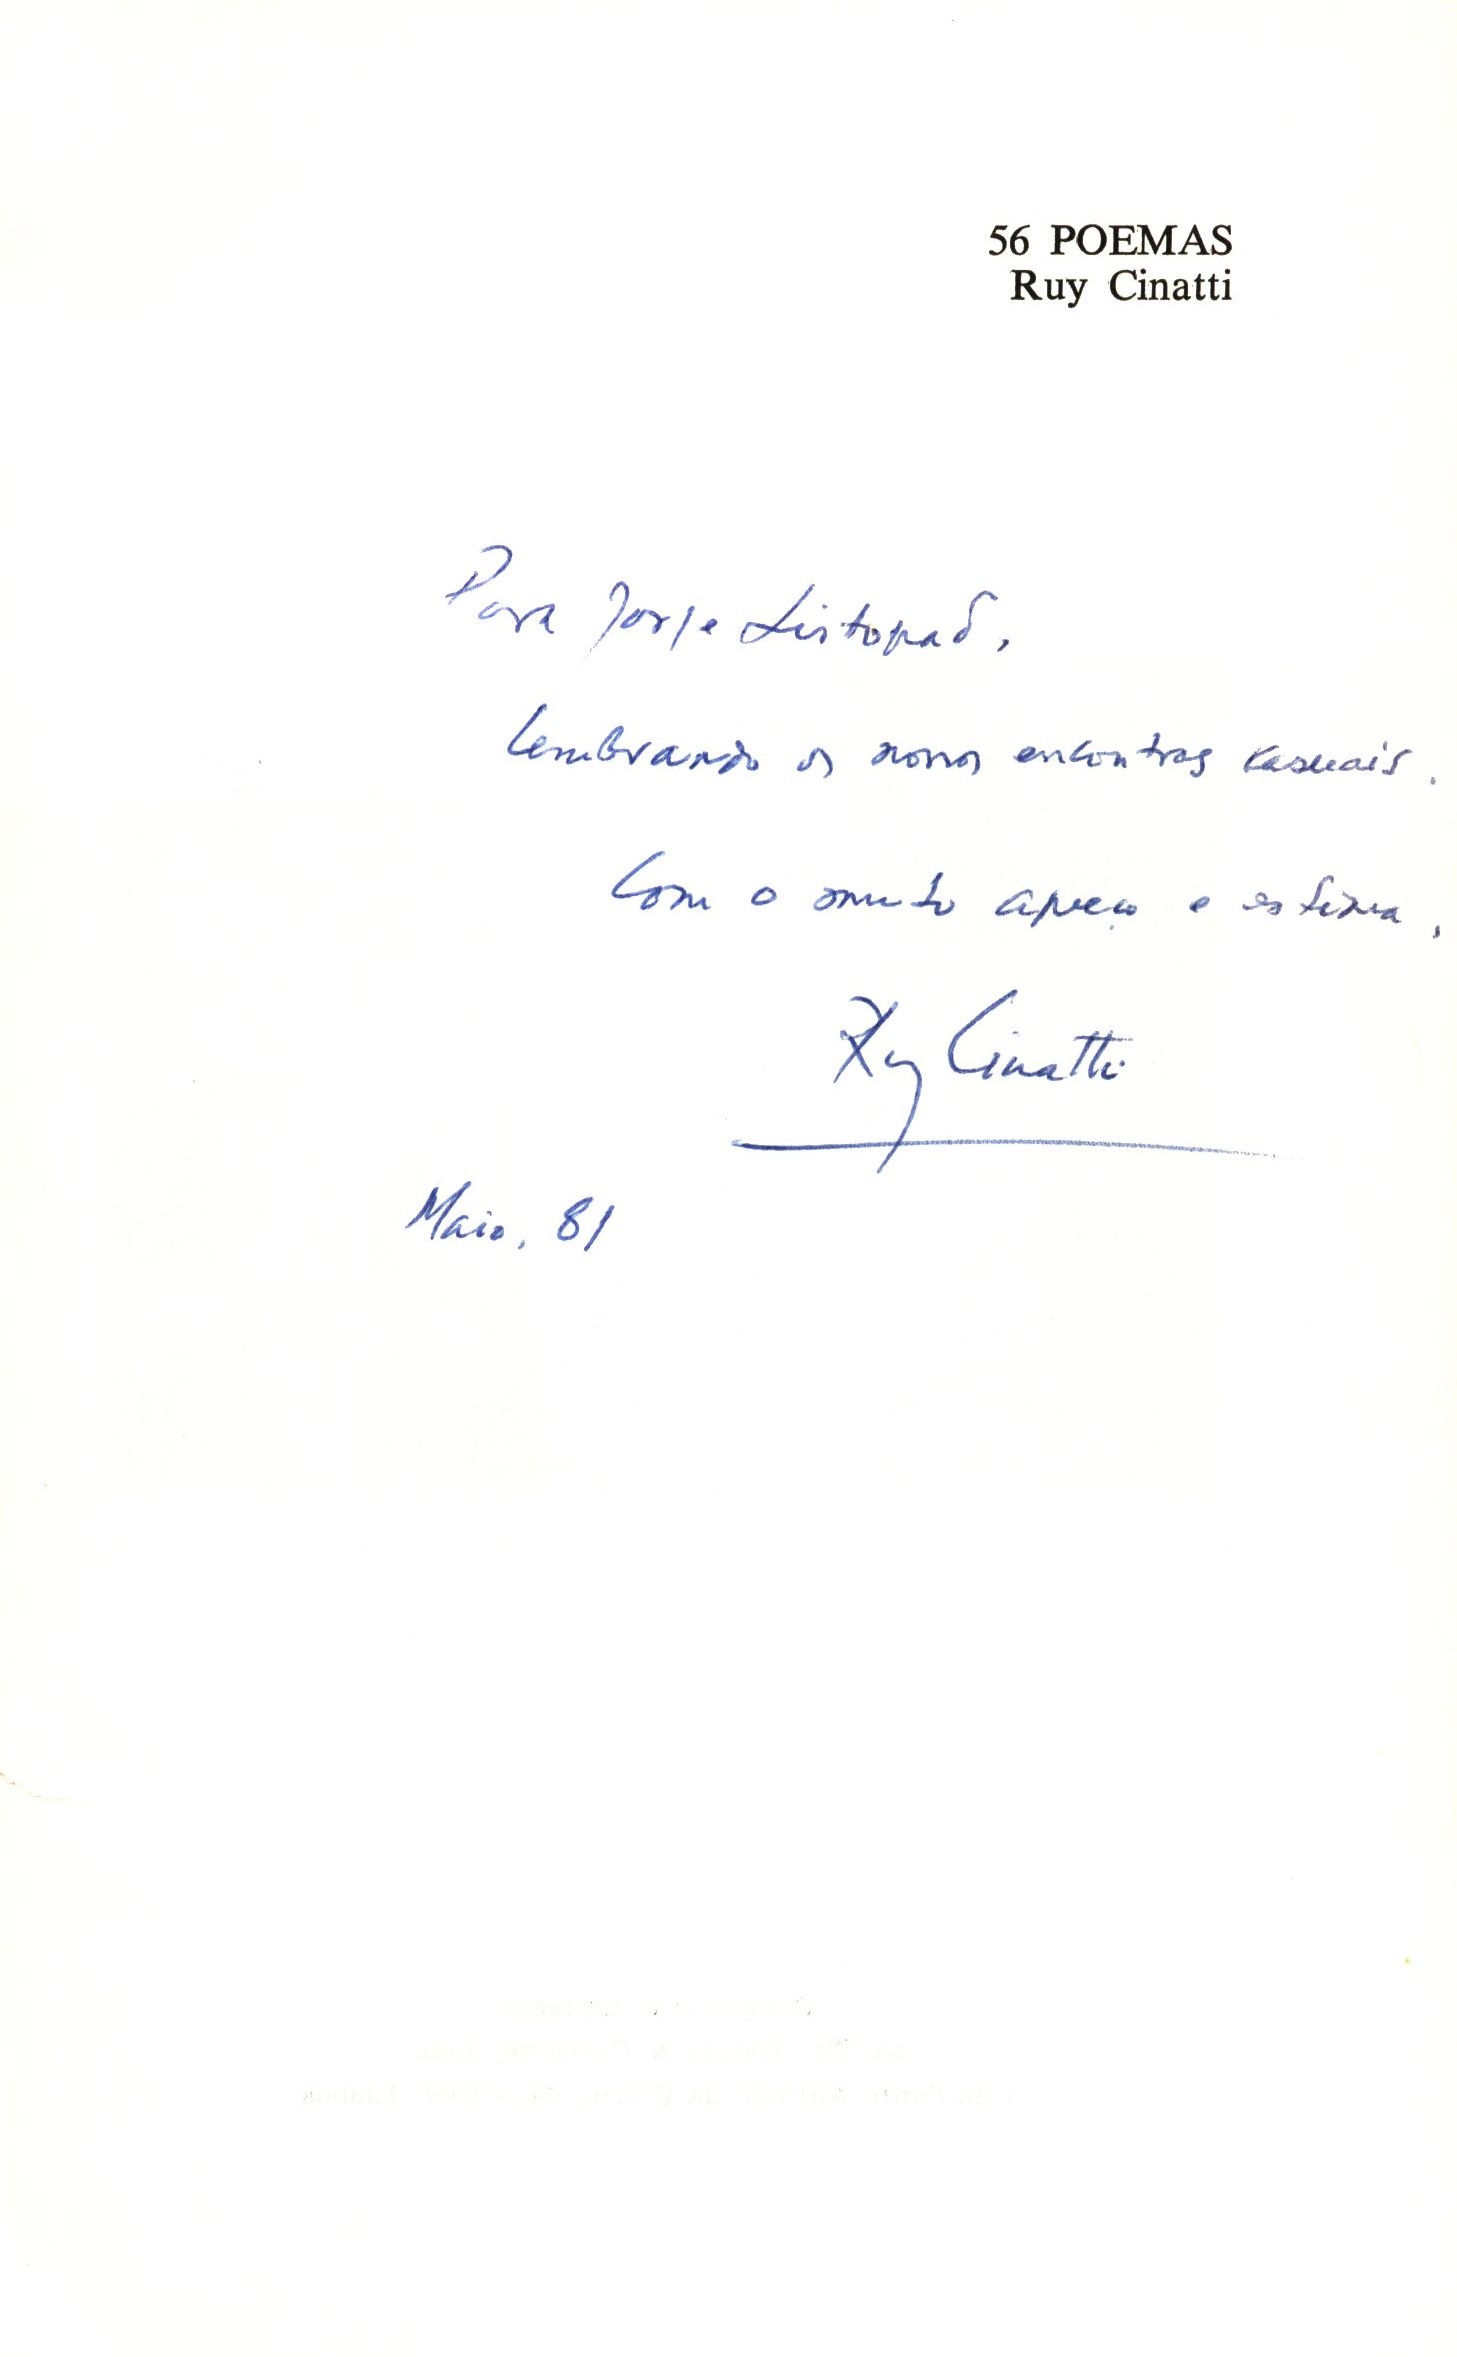 56 POEMAS
Ruy Cinatti
Para Jorge Listopad,
lembrando os nossos encontros casuais.
Com o muito apreço e estima,
Ruy Cinatti
Maio, 81